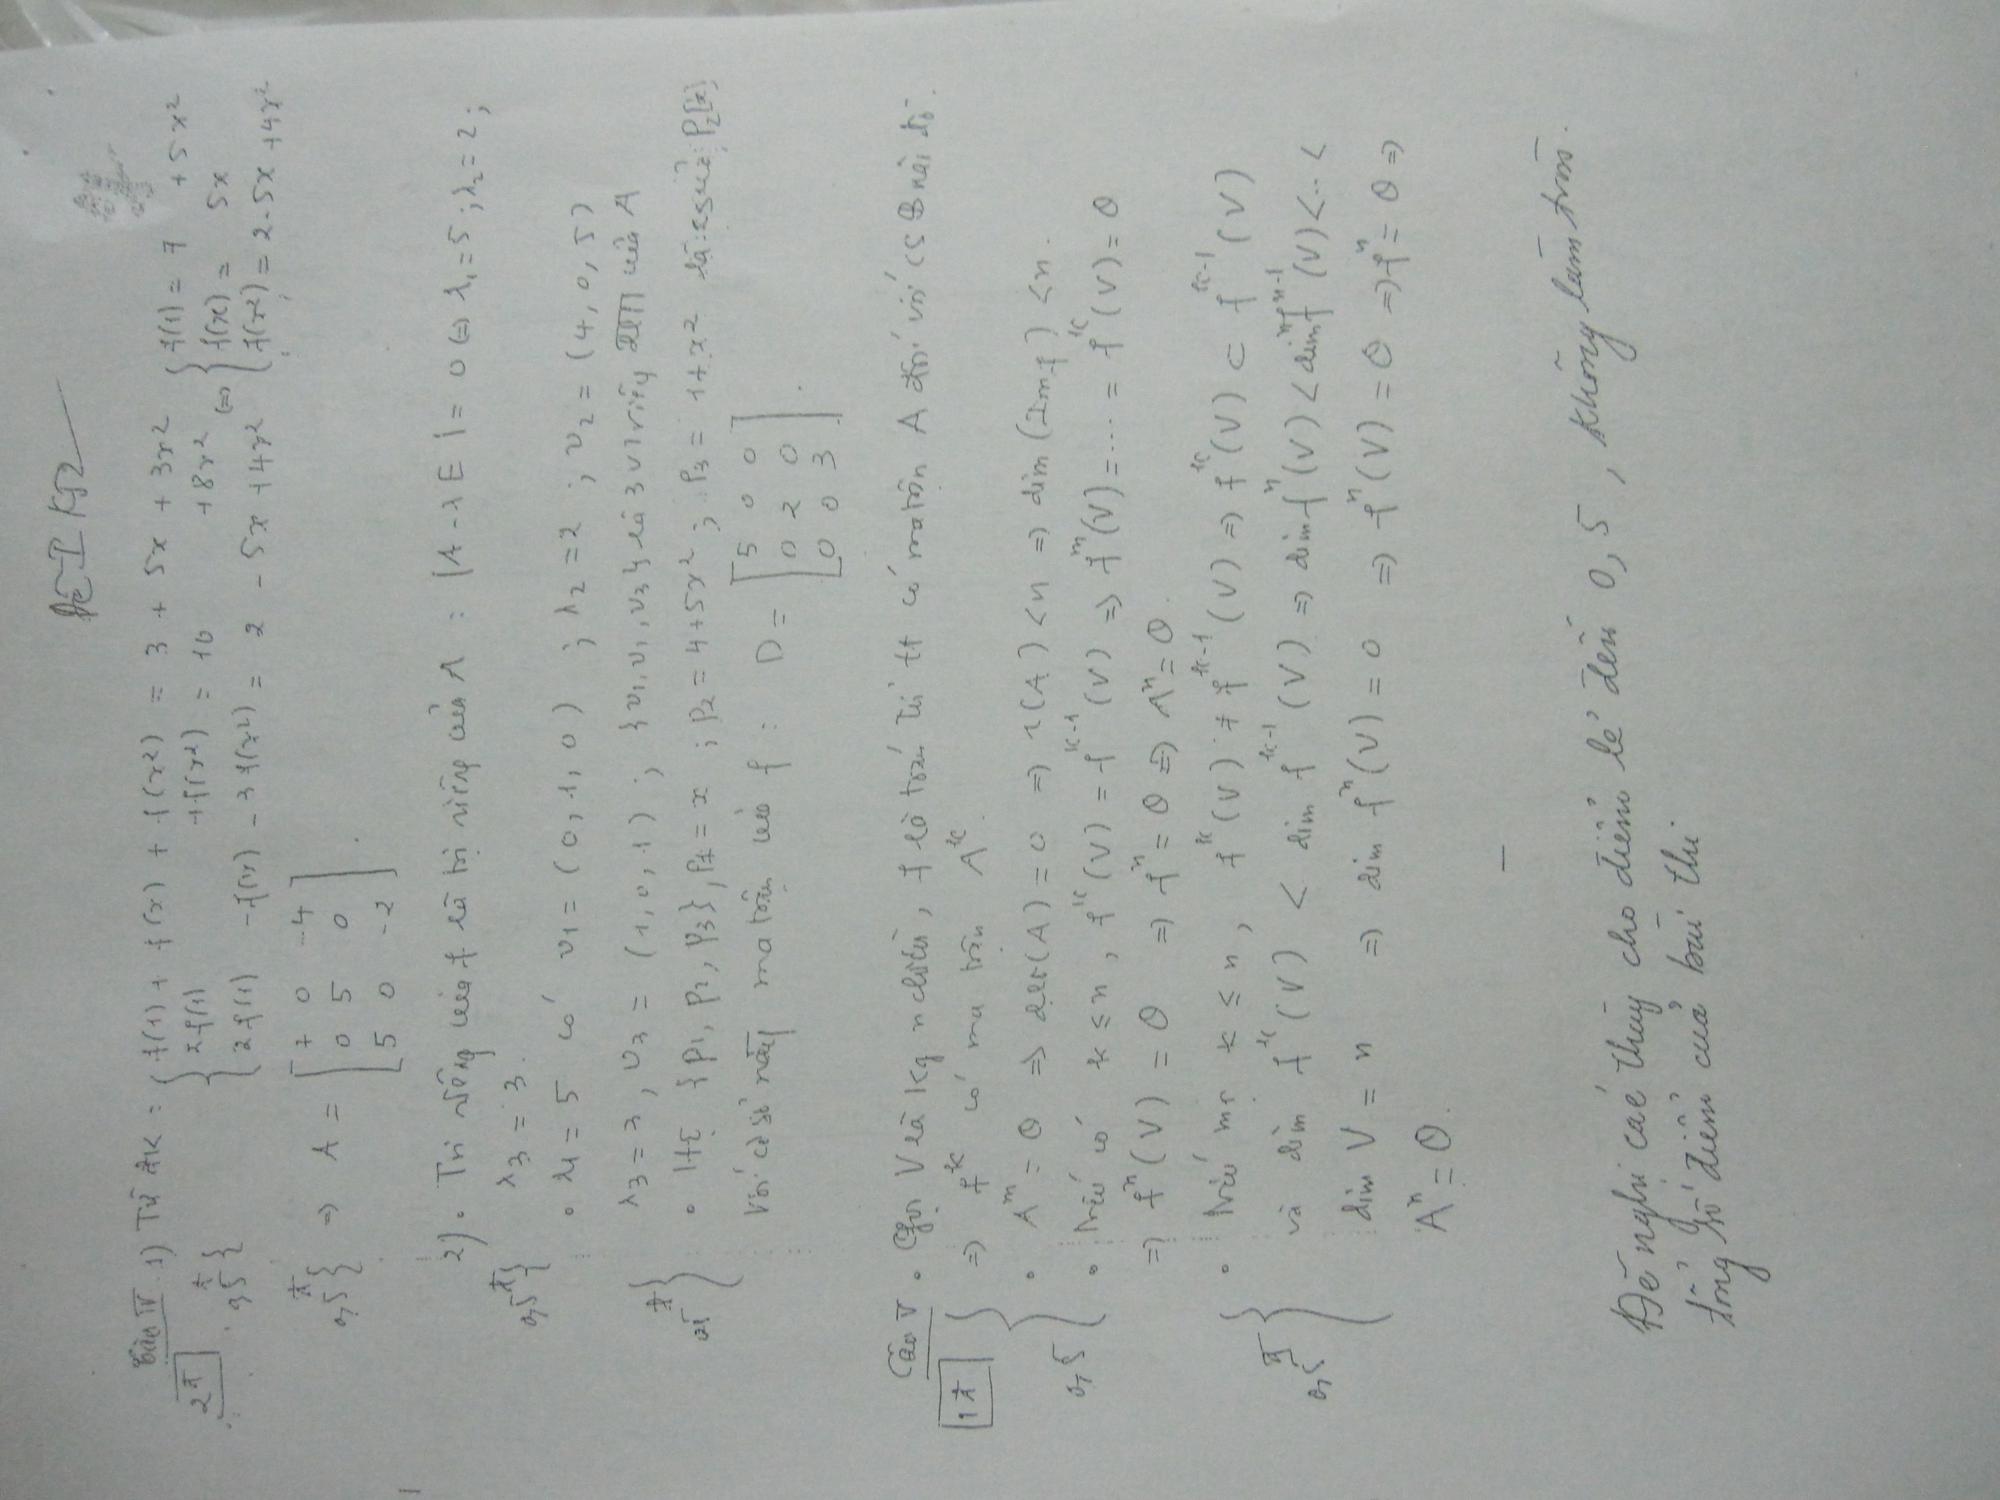 Đề I K52
Câu IV. 1) Từ ĐK: { f(1) + f(x) + f(x²) = 3 + 5x + 3x² { f(1) = 7 + 5x²
2đ 2f(1) + f(x²) = 10 + 8x² (=) f(x) = 5x
0,5đ { 2f(1) - f(x) - 3f(x²) = 2 - 5x + 4x² f(x²) = 2 - 5x + 4x²
0,5đ { => A = [ 7 0 -4
0 5 0
5 0 -2 ].
2). Trị riêng của f là trị riêng của A : |A - λE| = 0 (=) λ₁=5 ; λ₂=2 ;
0,5đ } λ3 = 3.
• λ1 = 5 có v1 = (0, 1, 0) ; λ2 = 2 ; v2 = (4, 0, 5)
λ3 = 3, v3 = (1, 0, 1) ; {v1, v1, v3} là 3 VT riêng ĐLTT của A
• Hệ {p1, p2, p3}, p1 = x ; p2 = 4+5x² ; p3 = 1+x² là P2[x]
Với cơ sở này ma trận của f : D = [ 5 0 0
0 2 0
0 0 3 ].
Câu V. Gọi V là kg n chiều, f là toán tử tt có ma trận A đối với CS B nào đó.
1đ => f^k có ma trận A^k.
• A^m = θ => det(A) = 0 => r(A) < n => dim (Im f) < n.
0,5 • Nếu có k ≤ n, f^k(V) = f^{k-1}(V) => f^m(V) = ... = f^k(V) = θ
=> f^n(V) = θ => f^n = θ => A^n = θ.
• Nếu mọi k ≤ n, f^k(V) ≠ f^{k-1}(V) => f^k(V) ⊂ f^{k-1}(V)
0,5đ và dim f^k(V) < dim f^{k-1}(V) => dim f^n(V) < dim f^{n-1}(V) < .. <
dim V = n => dim f^n(V) = 0 => f^n(V) = θ => f^n = θ =>
A^n = θ.
Đề nghị các thầy cho điểm lẻ đến 0,5, không làm tròn
tổng số điểm của bài thi